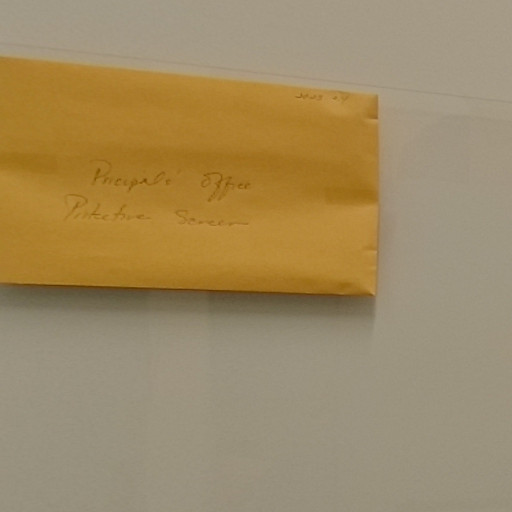 Principals' Office
Protective Screen